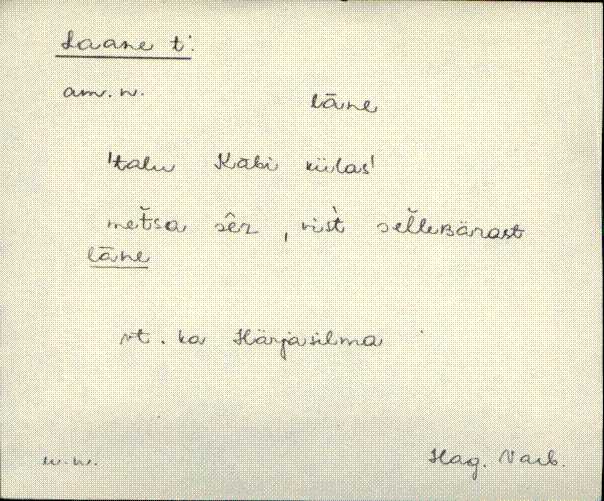 Laane t.
am. n.
lāne
'talu Käbi külas'
metsa sêr, vist selleBärast
lāne
vt. ka Härjasilma
n. n.
Hag. Varb.